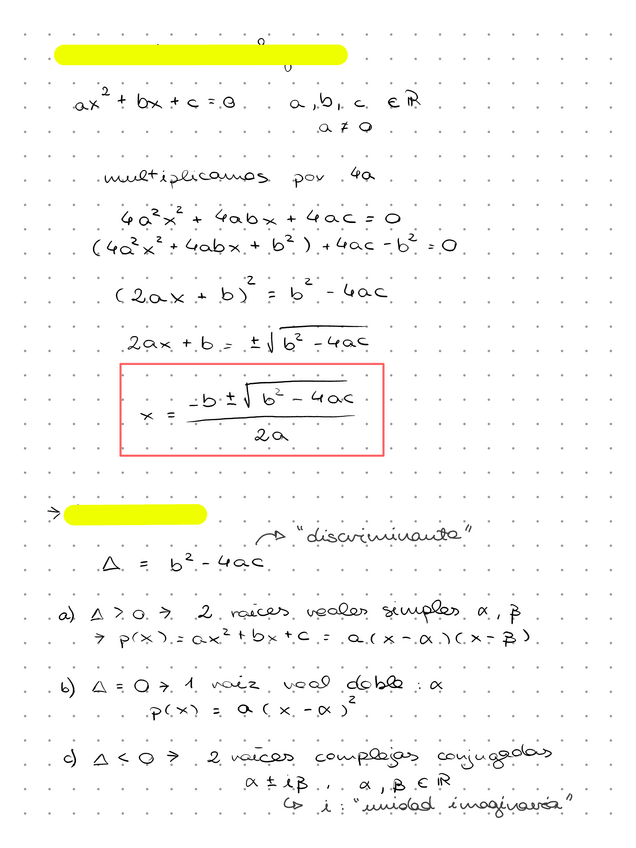 ax² + bx + c = 0   a, b, c ∈ ℝ
a ≠ 0
multiplicamos por 4a
4a²x² + 4abx + 4ac = 0
(4a²x² + 4abx + b²) + 4ac - b² = 0
(2ax + b)² = b² - 4ac
2ax + b = ±√(b² - 4ac)
x = (-b ± √(b² - 4ac)) / 2a
→
→ "discriminante"
Δ = b² - 4ac
a) Δ > 0 → 2 raíces reales simples α, β
→ p(x) = ax² + bx + c = a(x - α)(x - β)
b) Δ = 0 → 1 raiz real doble : α
p(x) = a(x - α)²
c) Δ < 0 → 2 raíces complejas conjugadas
α ± iβ , α, β ∈ ℝ
↳ i : "unidad imaginaria"